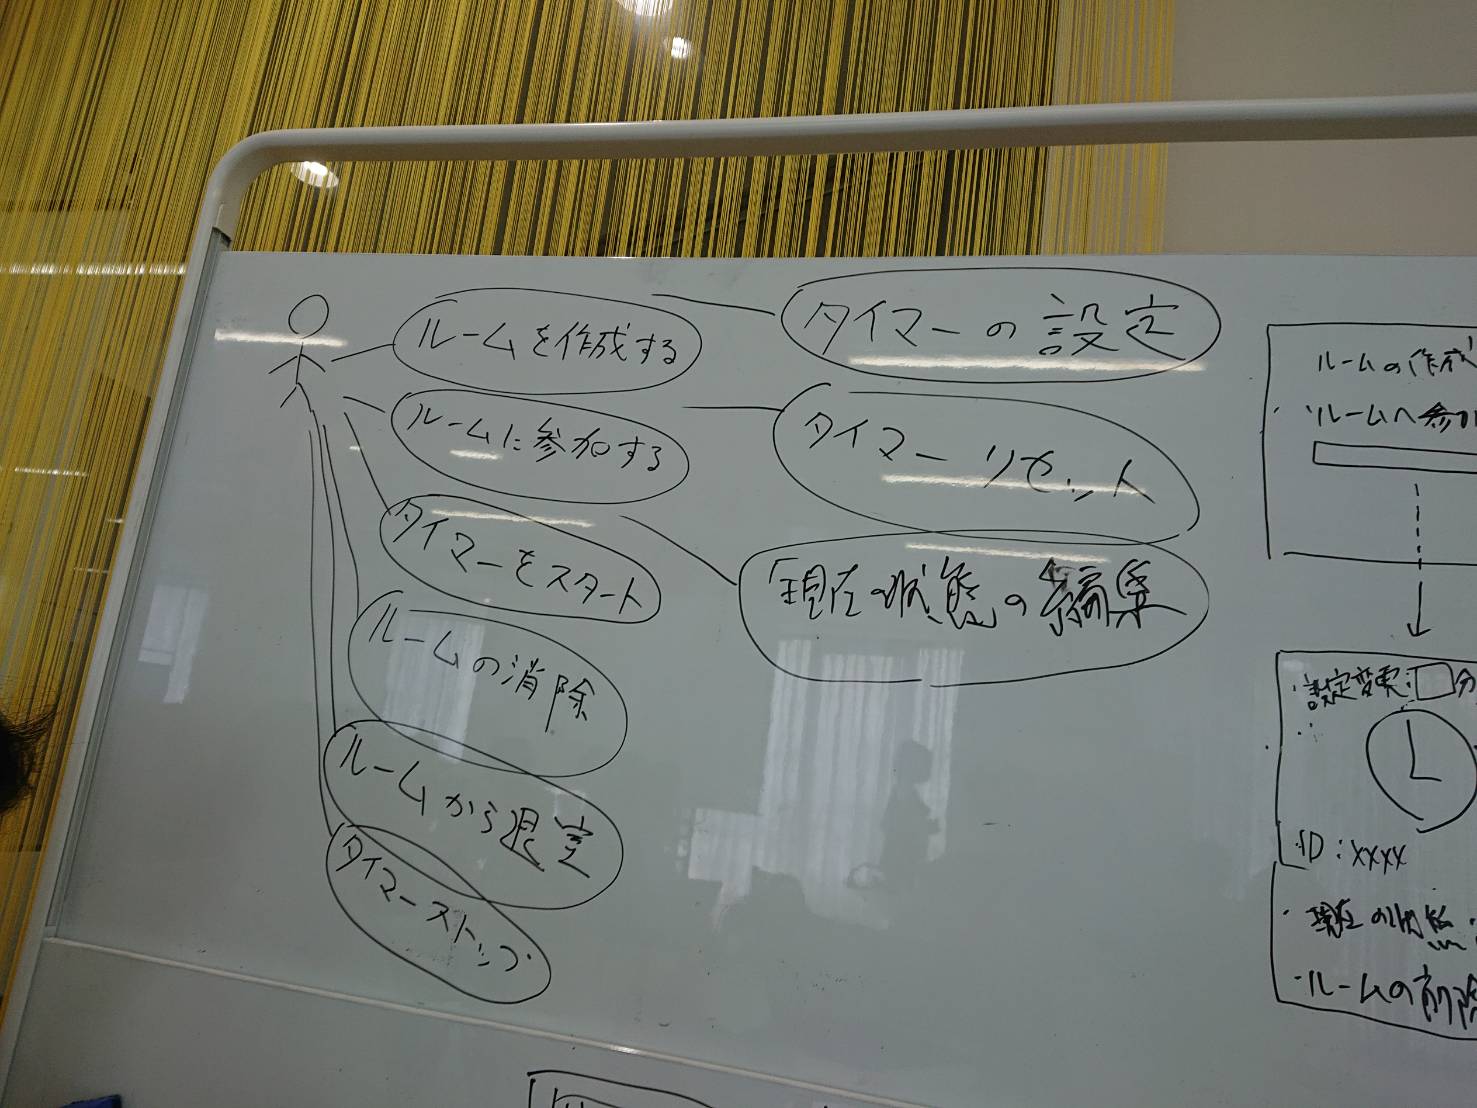 ルームを作成する
ルームに参加する
タイマーをスタート
ルームの消除
ルームから退室
タイマーストップ
タイマーの設定
タイマーリセット
現在の状態の編集
ルームの作成
・ルームへ参加
設定変更:分
ID:xxxx
・現在の状態:
・ルームの削除